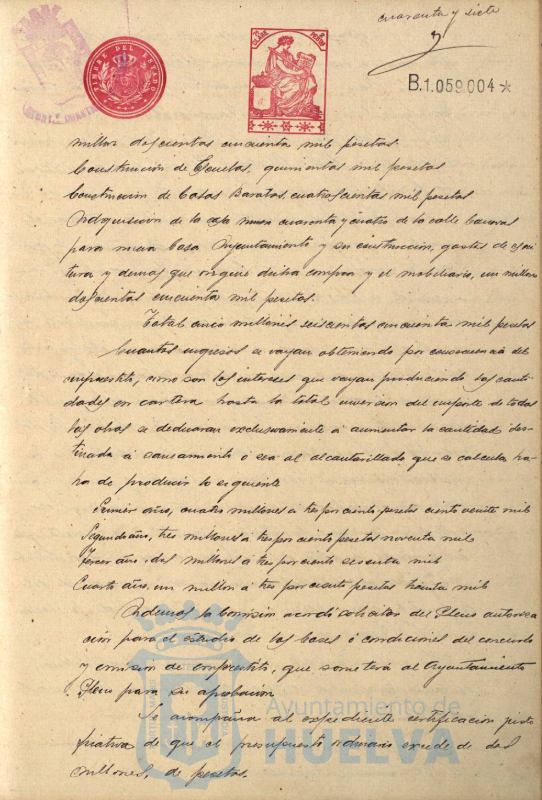 cuarenta y siete
TIMBRE DEL ESTADO
B.1.059.004*
millon doscientas cincuenta mil pesetas.
Construccion de Escuelas, quinientas mil pesetas
Construccion de Casas Baratas, cuatrocientas mil pesetas
Adquisicion de la casa numero cuarenta y cuatro de la calle
para nueva Casa Ayuntamiento y su construccion, gastos de escri
tura y demas que origine dicha compra y el mobiliario, un millon
doscientas cincuenta mil pesetas.
Total cinco millones seiscientas cincuenta mil pesetas
Cuantos ingresos se vayan obteniendo por consecuencia del
emprestito, como son los intereses que vayan produciendo las canti
dades en cartera hasta la total inversion del importe de todas
las obras se dedicaran exclusivamente á aumentar la cantidad des
tinada á saneamiento ó sea al alcantarillado que se calcula ha
ra de producir lo siguiente
Primer año, cuatro millones á tres por ciento pesetas ciento veinte mil
Segundo año, tres millones á tres por ciento pesetas noventa mil
Tercer año, dos millones á tres por ciento sesenta mil
Cuarto año, un millon á tres por ciento pesetas treinta mil
Ademas la Comision acordó solicitar del Pleno autoriza
ción para el estudio de las bases ó condiciones del concurso
y emisión de emprestito, que someterá al Ayuntamiento
Pleno para su aprobación
Se acompaña al expediente certificación justi
ficativa de que el presupuesto ordinario excede de dos
millones, de pesetas.
Ayuntamiento de
HUELVA